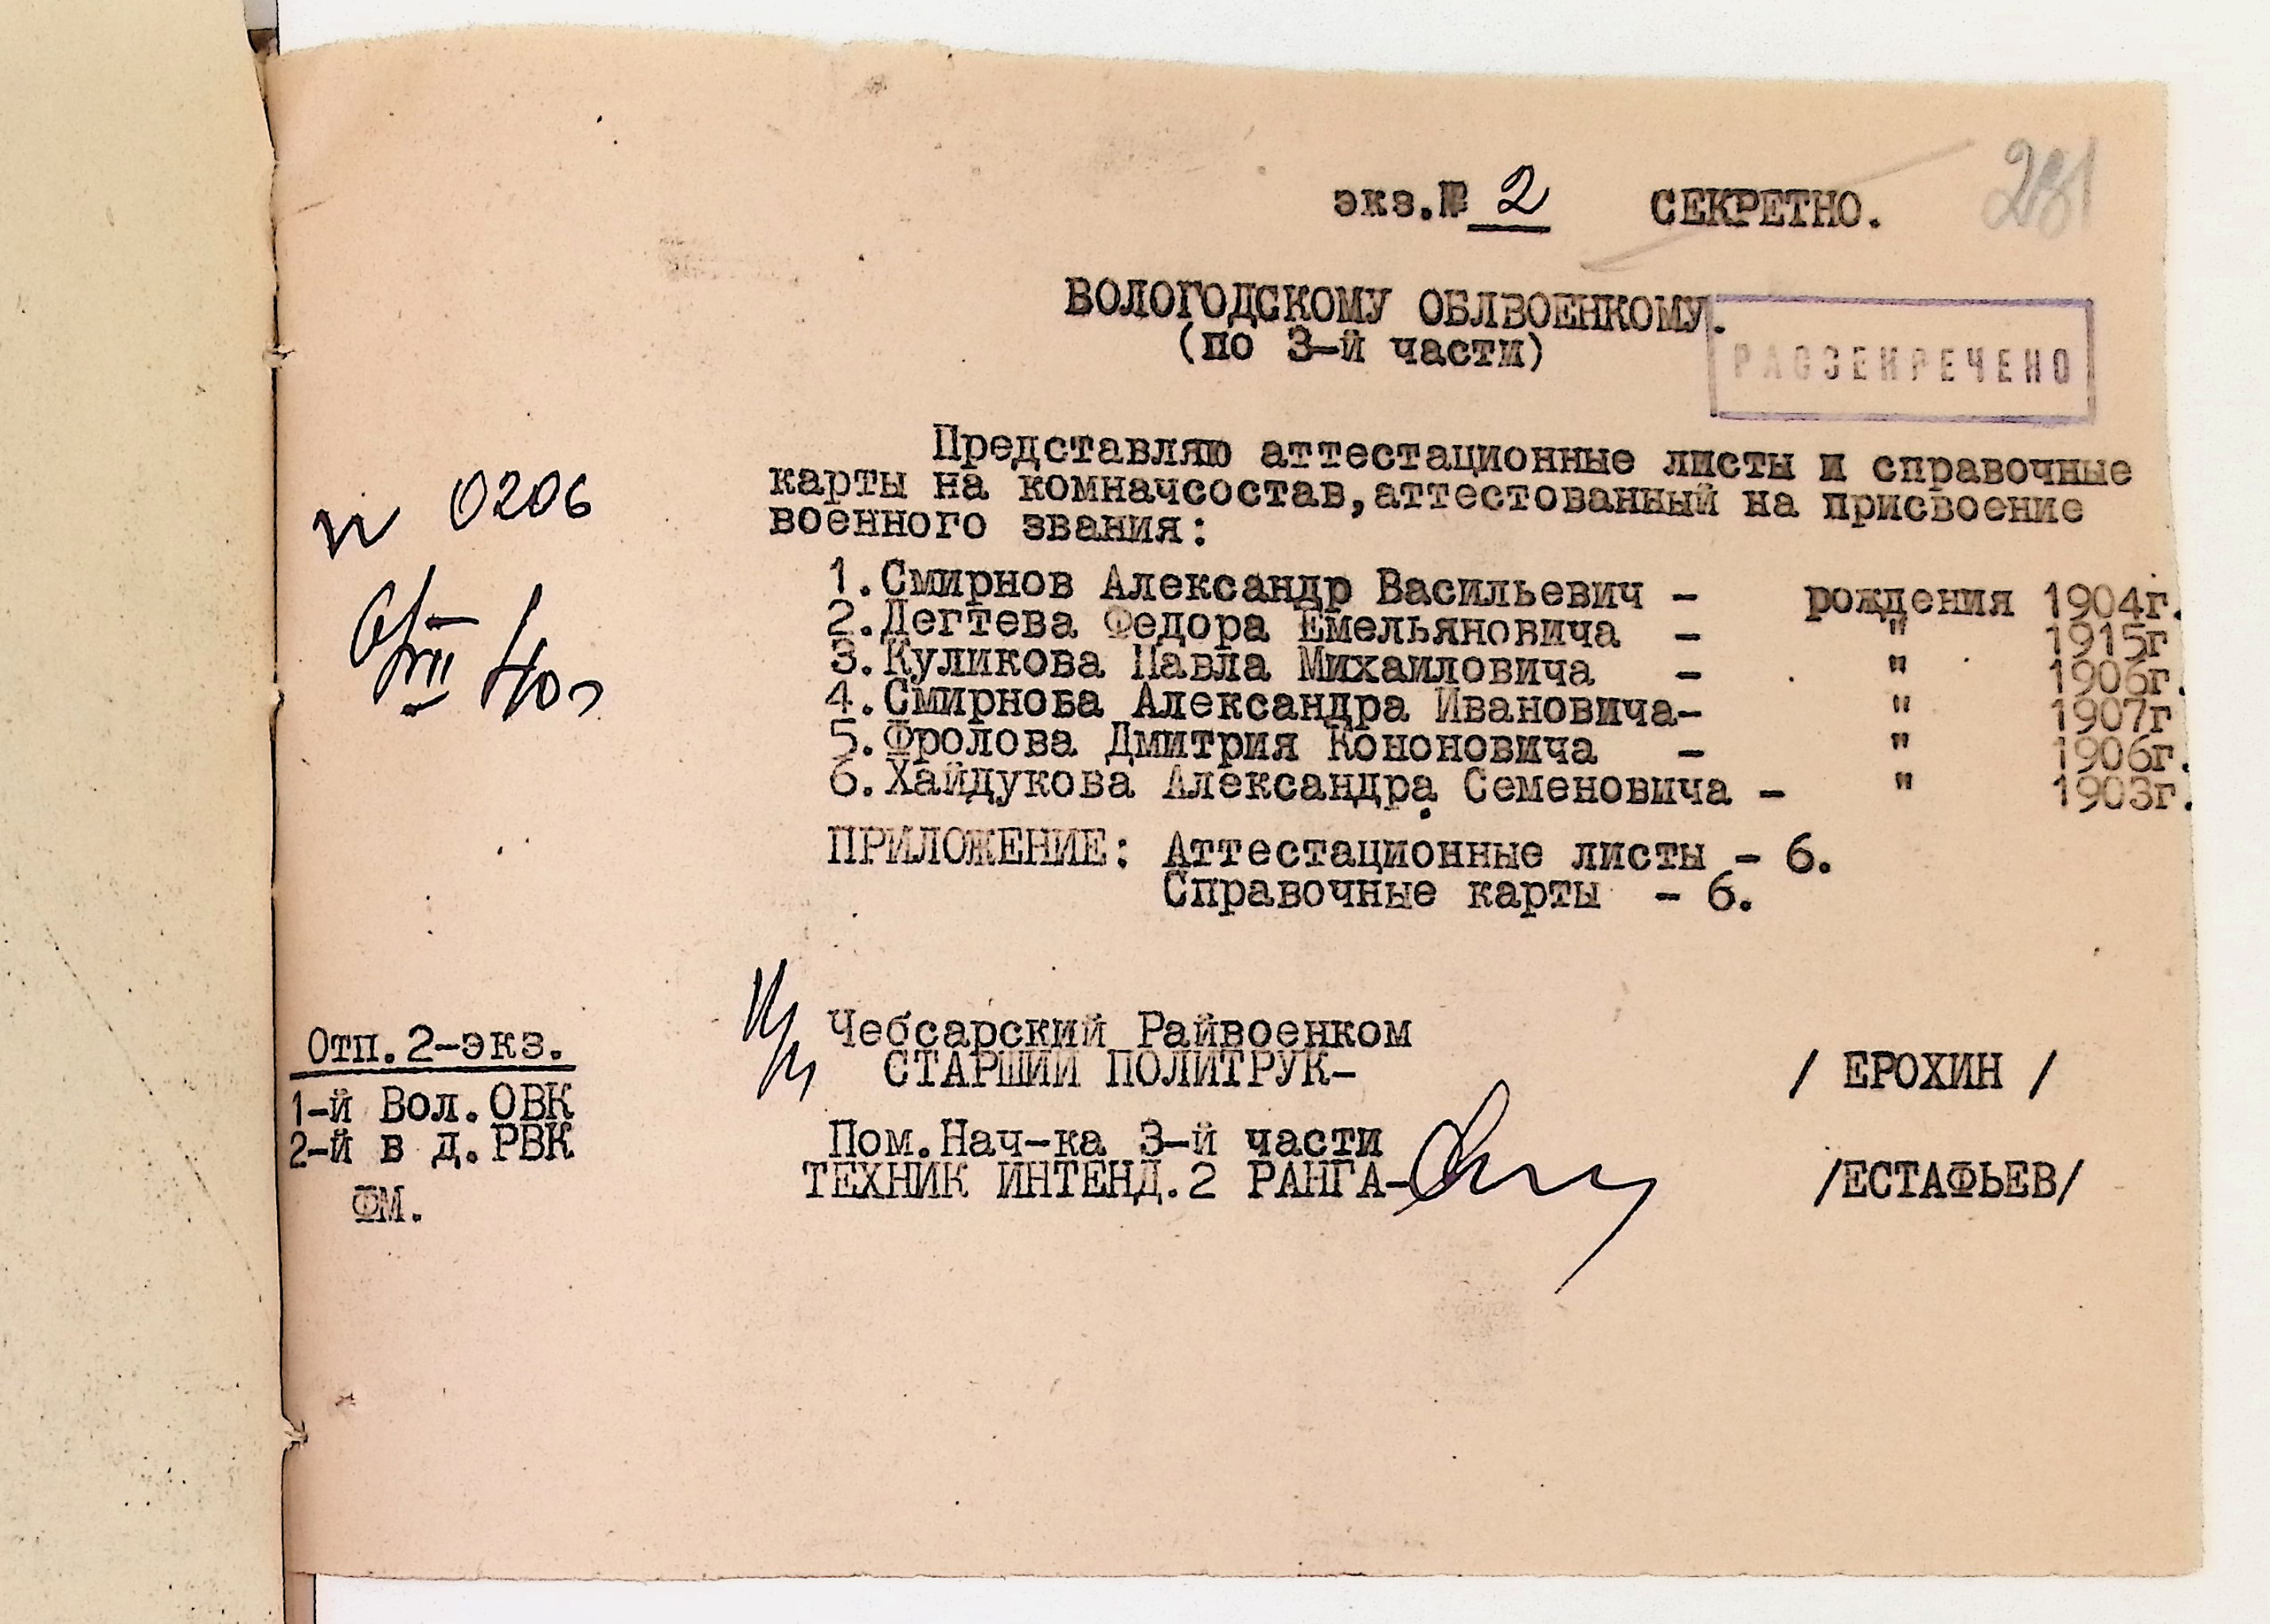 экз.№ 2 СЕКРЕТНО. 281
ВОЛОГОДСКОМУ ОБЛВОЕНКОМУ.
(по 3-й части)
РАССЕКРЕЧЕНО
Представляю аттестационные листы и справочные
карты на комначсостав,аттестованный на присвоение
военного звания:
№ 0206
1.Смирнов Александр Васильевич - рождения 1904г.
2.Дегтева Федора Емельяновича - " 1915г
3.Куликова Павла Михаиловича - " 1906г.
4.Смирнова Александра Ивановича- " 1907г
5.Фролова Дмитрия Кононовича - " 1906г.
6.Хайдукова Александра Семеновича - " 1903г.
VII 40г
ПРИЛОЖЕНИЕ: Аттестационные листы - 6.
Справочные карты - 6.
Чебсарский Райвоенком
СТАРШИЙ ПОЛИТРУК- / ЕРОХИН /
Пом.Нач-ка 3-й части
ТЕХНИК ИНТЕНД.2 РАНГА- /ЕСТАФЬЕВ/
Отп.2-экз.
1-й Вол.ОВК
2-й в д.РВК
ФМ.